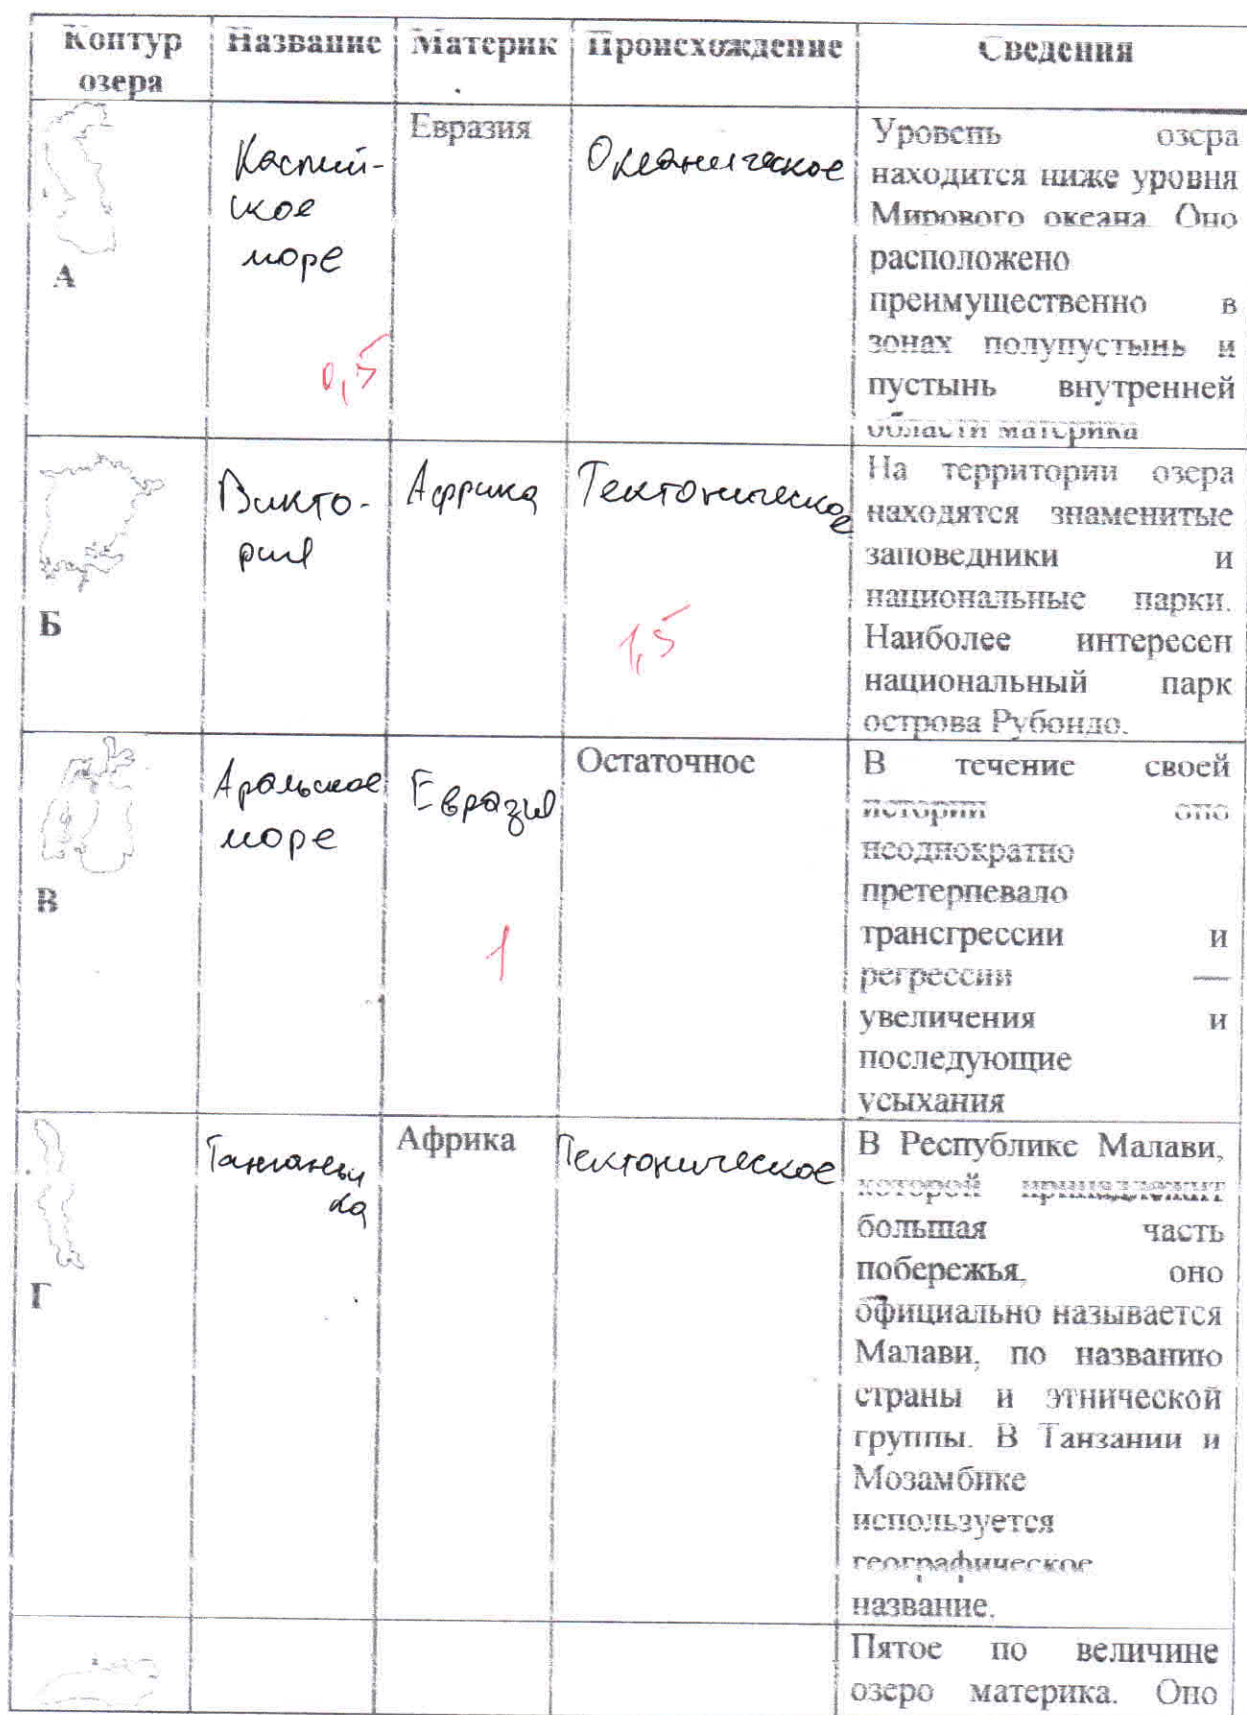 Контур
озера
Название
Материк
Происхождение
Сведения
А
Каспий-
ское
море
0,5
Евразия
Океаническое
Уровень озера
находится ниже уровня
Мирового океана. Оно
расположено
преимущественно в
зонах полупустынь и
пустынь внутренней
области материка
Б
Викто-
рия
Африка
Тектоническое
1,5
На территории озера
находятся знаменитые
заповедники и
национальные парки.
Наиболее интересен
национальный парк
острова Рубондо.
В
Аральское
море
Евразия
1
Остаточное
В течение своей
истории оно
неоднократно
претерпевало
трансгрессии и
регрессии —
увеличения и
последующие
усыхания
Г
Танганьи
ка
Африка
Тектоническое
В Республике Малави,
которой принадлежит
большая часть
побережья, оно
официально называется
Малави, по названию
страны и этнической
группы. В Танзании и
Мозамбике
используется
географическое
название.
Пятое по величине
озеро материка. Оно